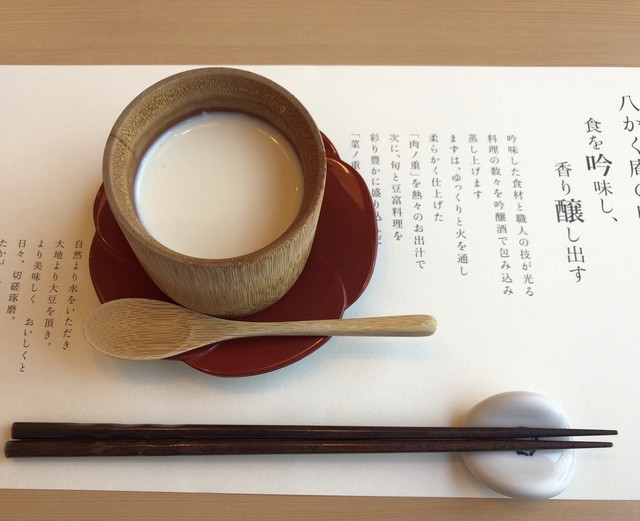 八かく庵の
食を吟味し、
香り醸し出す
吟味した食材と職人の技が光る
料理の数々を吟醸酒で包み込み
蒸し上げます
まずは、ゆっくりと火を通し
柔らかく仕上げた
「肉ノ重」を熱々のお出汁で
次に、旬と豆富料理を
彩り豊かに盛り込んだ
「菜ノ重
自然より水をいただき
大地より大豆を頂き。
より美味しく おいしくと
日々、切磋琢磨。